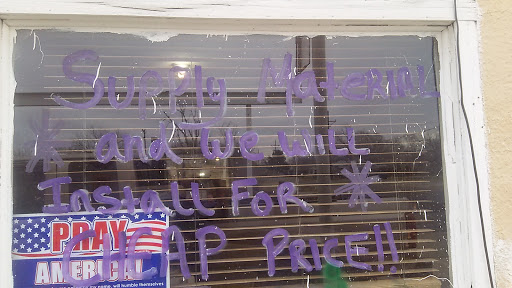 Supply Material
* and we will
Install For *
CHEAP Price!!
PRAY
AMERICA!
my name, will humble themselves